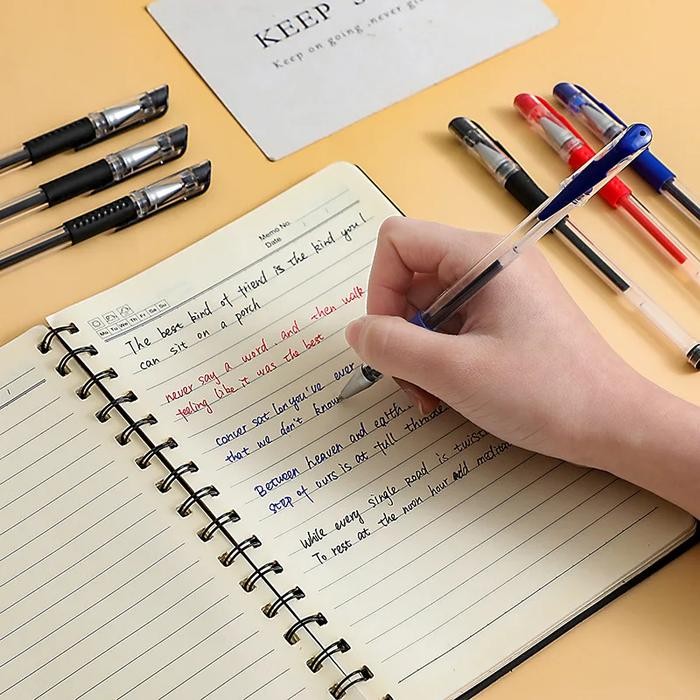 KEEP
Keep on going never
Memo No.
Date / /
Mo Tu We Th Fr Sa Su
The best kind of friend is the kind you!
can sit on a porch
never say a word. and then walk
feeling like it was the best
conver sat Ion you've ever
that we don't know
Between heaven and earth
step of ours is at full throttle
While every single road is
To rest at the noon hour add
/